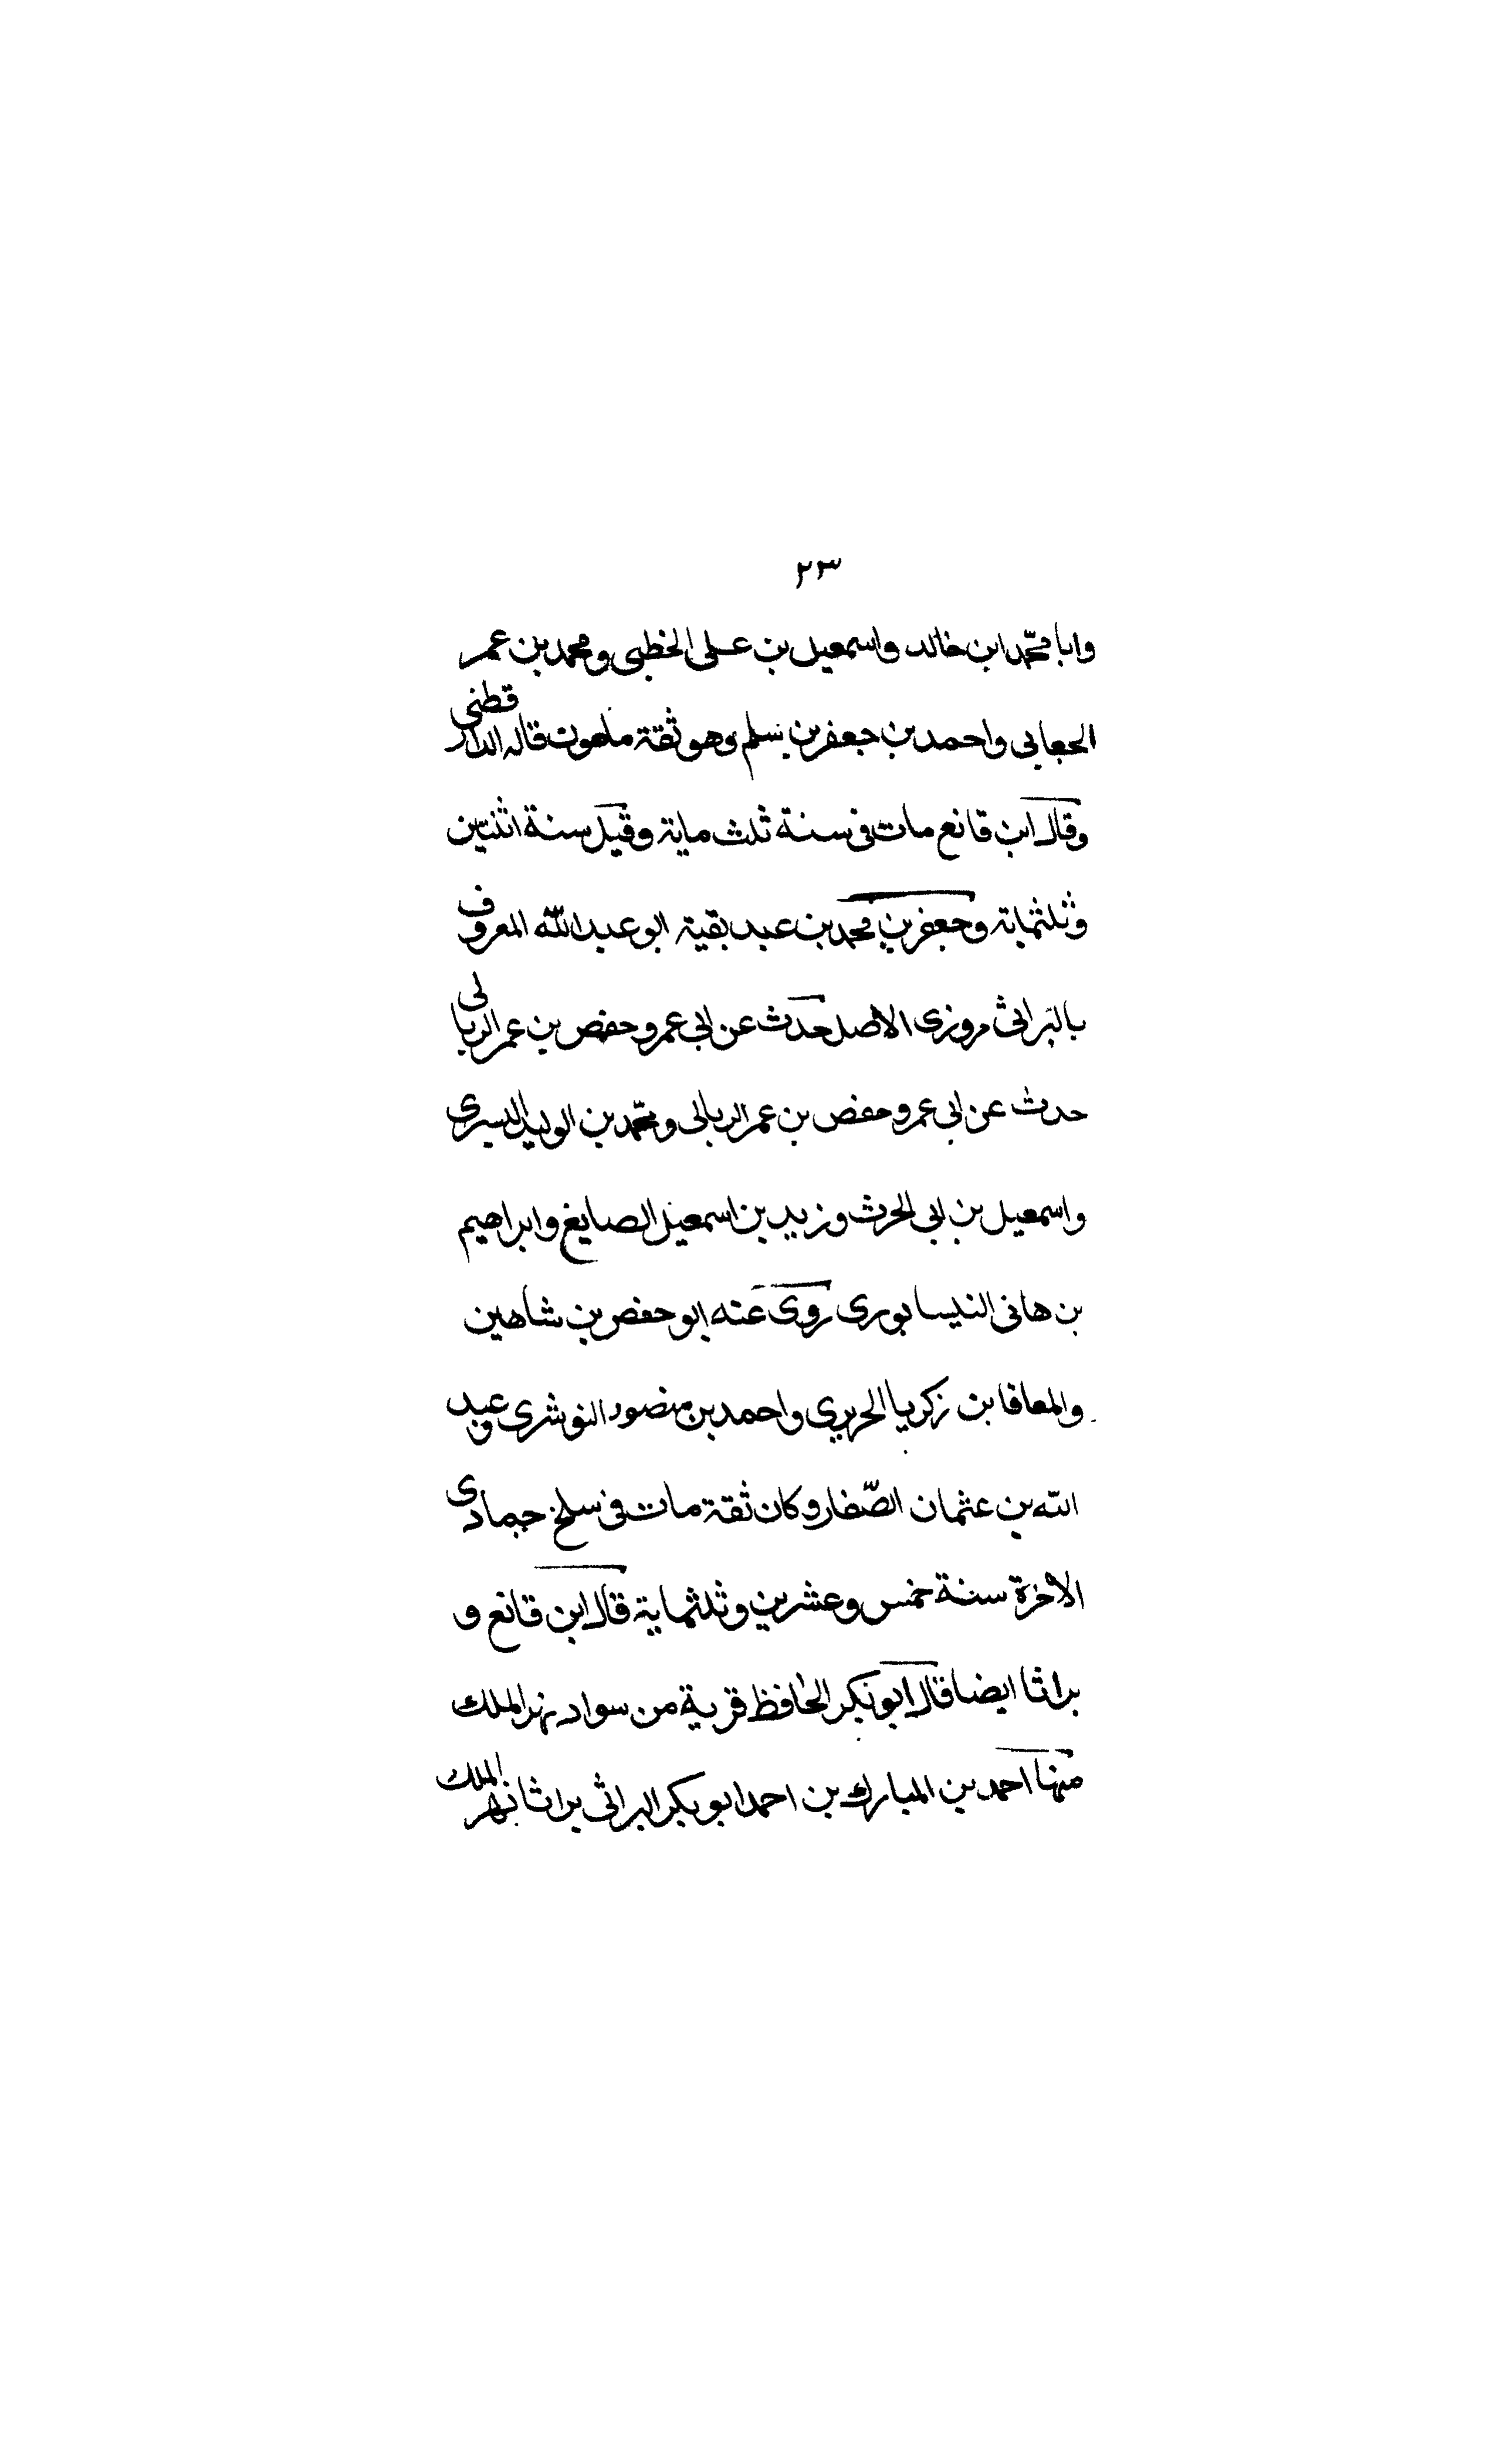 ٢٣
وابا محمد ابن خالد واسمعيل بن على الخطبى ومحمد بن عمر
الجعابي واحمد بن جعفر بن سلم وهو ثقة مامون قاله الدارقطنى
وقال ابن قانع مات فى سنة ثلث ماية وقيل سنة اثنتين
وثلثماية وجعفر بن محمد بن عبد بقية ابو عبد الله المعروف
بالبراثى مروزى الاصل حدث عن ابى عمرو حفص بن عمر الربالى
حدث عن ابى عمرو حفص بن عمر الربالى ومحمد بن الوليد البسرى
واسمعيل بن ابى الحرث وزيد بن اسمعيل الصايغ وابراهيم
بن هانى النيسابورى روى عنه ابو حفص بن شاهين
والمعافا بن زكريا الحريري واحمد بن منصور النوشرى وعبيد
الله بن عثمان الصّفار وكان ثقة مات فى سلخ جمادى
الاخرة سنة خمس وعشرين وثلثماية قال ابن قانع و
براثا ايضا قال ابو بكر الحافظ قرية من سواد نهر الملك
منها احمد بن المبارك بن احمد ابو بكر البراثى براثا نهر الملك